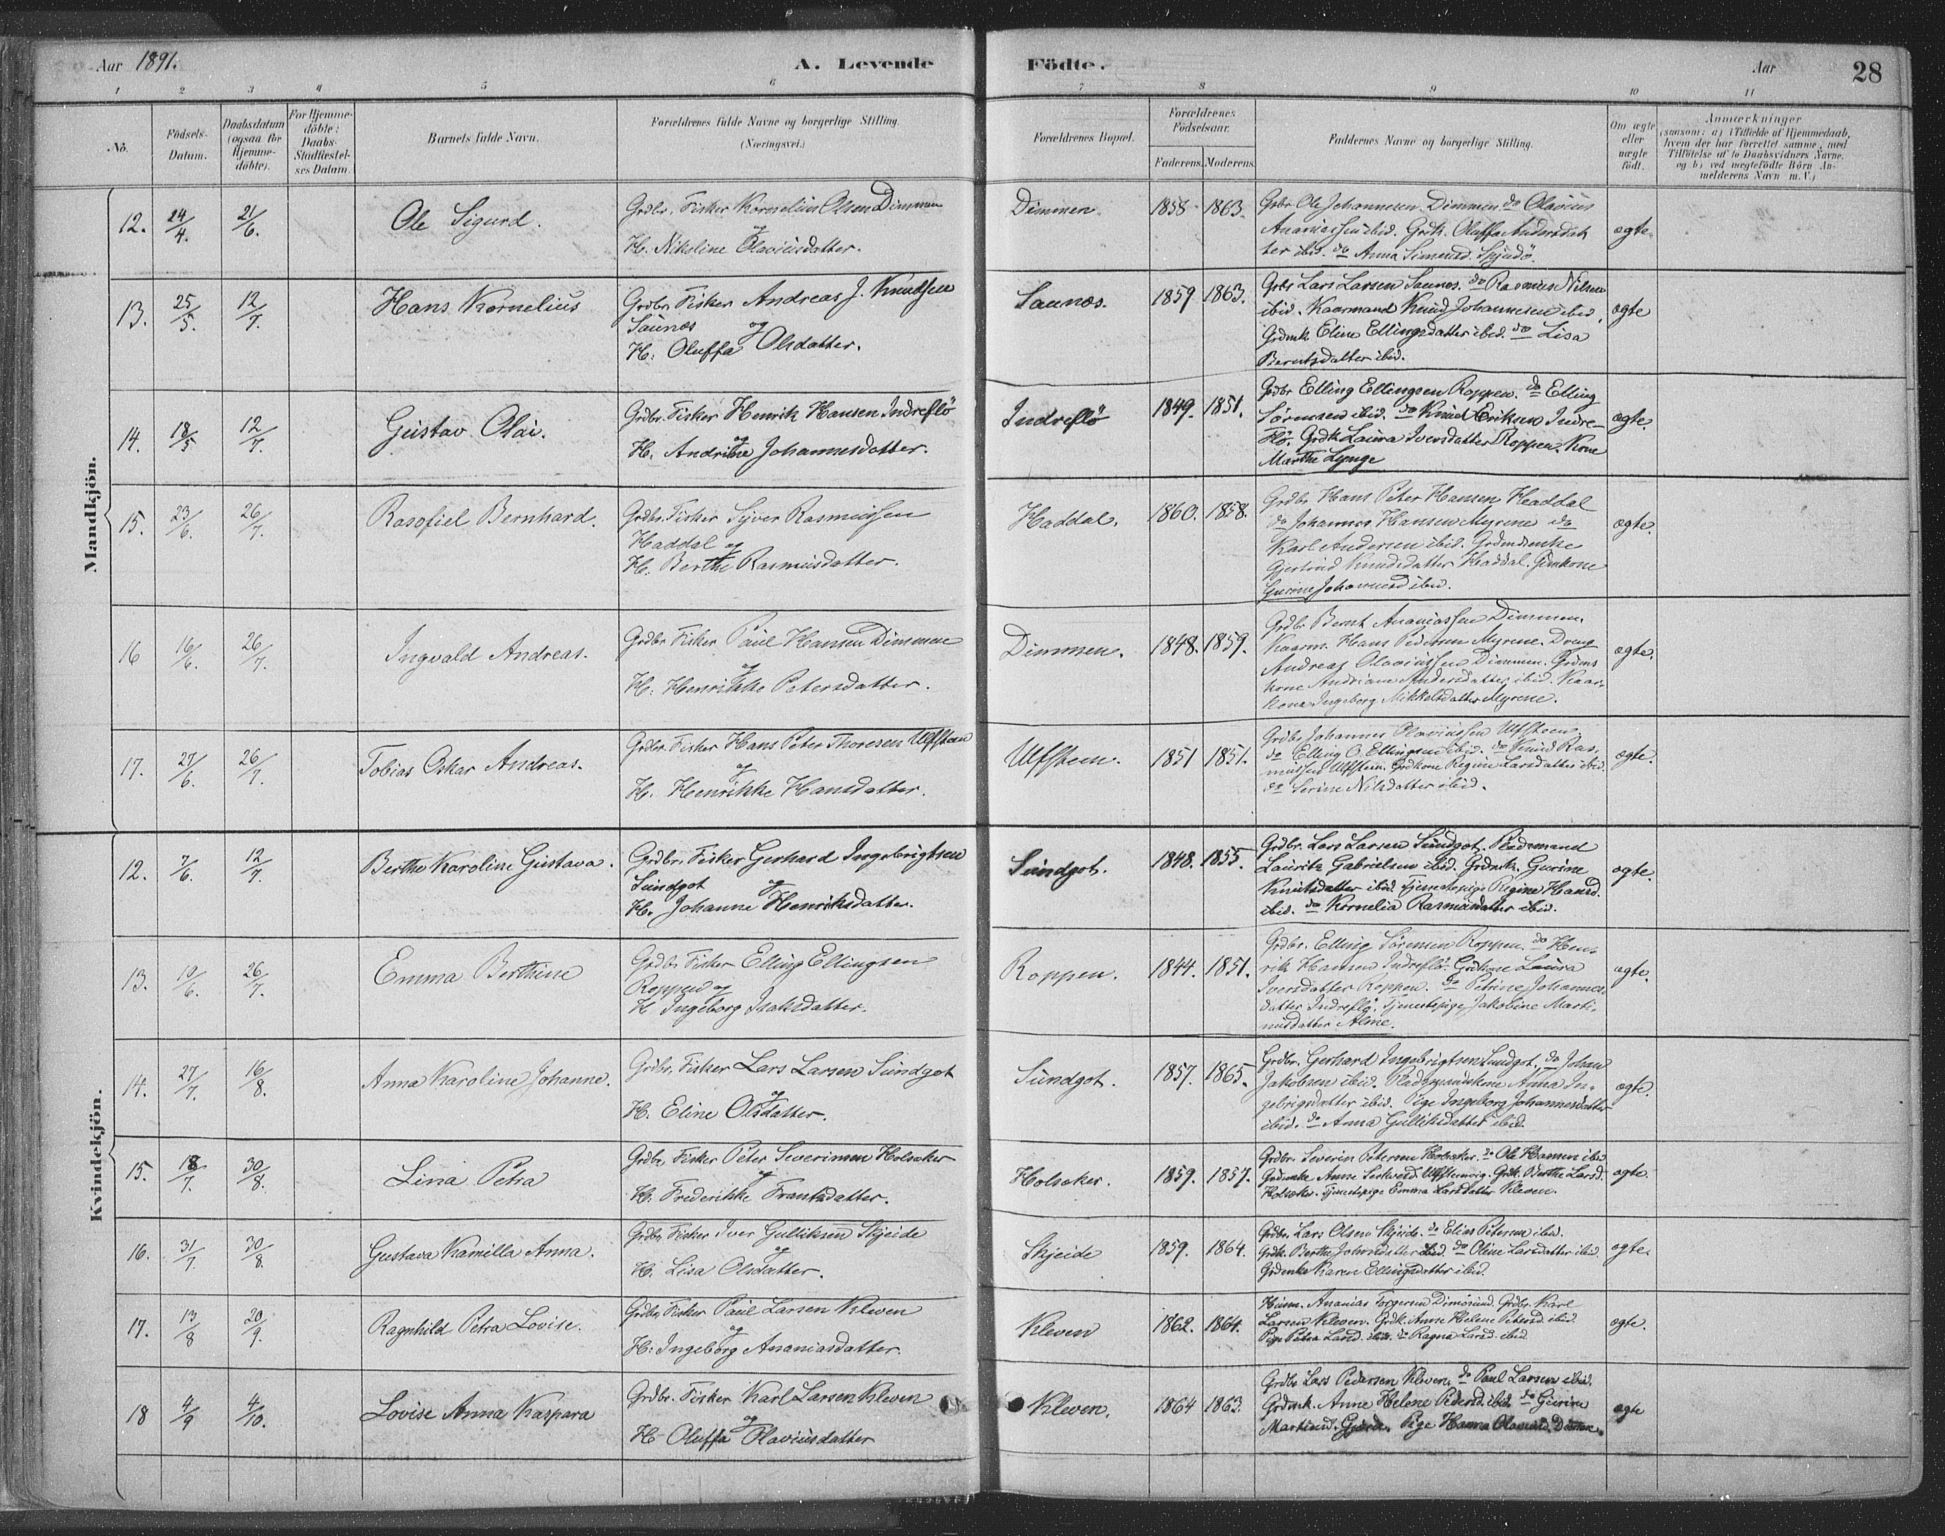 Aar 1891.
A. Levende
Födte.
Aar
28
1 2 3 4 5 6 7 8 9 10 11
No.
Födsels-
Datum.
Daabsdatum
(ogsaa for
Hjemme-
döbte).
For Hjemme-
döbte:
Daabs-
Stadfæstel-
ses Datum.
Barnets fulde Navn.
Forældrenes fulde Navne og borgerlige Stilling.
(Næringsvei.)
Forældrenes Bopæl.
Forældrenes
Födselsaar.
Faderens. Moderens.
Faddernes Navne og borgerlige Stilling.
Om ægte
eller
uægte
födt.
Anmærkninger
(saasom: a) i Tilfælde af Hjemmedaab,
hvem der har forrettet samme, med
Tilföielse af to Daabsvidners Navne,
og b) ved uægtefödte Börn An-
melderens Navn m. V.)
Mandkjön.
12. 24/4 21/6. Ole Sigurd.
Grdbr. Fisker Kornelius Olsen Dimmen
og
H. Nikoline Olaviusdatter.
Dimmen. 1858 1863.
Grbr Ole Johannesen Dimmen do Olavius
Ananiassen ibid. Grdk. Oluffa Andersdat
ter ibid. do Anna Simonsd. Skjudö.
ægte.
13. 25/5. 12/7. Hans Kornelius
Grdbr. Fisker Andreas J. Knudsen
Saunes og
H. Oluffa Olsdatter.
Saunes. 1859 1863.
Grbr Lars Larsen Saunes. do Rasmus Nilsen
ibid. Kaarmand Knud Johannesen ibid.
Grdmk. Eline Ellingsdatter ibid. do Lisa
Berntsdatter ibid.
ægte
14. 18/5 12/7. Gustav Olai.
Grdbr. Fisker Henrik Hansen Indreflö
og
H. Andrine Johannesdatter.
Indreflö 1849. 1851.
Grdbr Elling Ellingsen Roppen. do Elling
Sörensen ibid. do Knud Eriksen Indre-
flö. Grdk Laura Iversdatter Roppen. Kone
Marthe Lynge
ægte.
15. 23/6. 26/7. Rasofiel Bernhard.
Grdbr. Fisker Syver Rasmussen
Haddal og
H. Berthe Rasmusdatter.
Haddal. 1860. 1858.
Grdbr Hans Peter Hansen Haddal
do Johannes Hansen Myrene do
Karl Andersen ibid. Grdmdsenke
Gjertrud Knudsdatter Haddal. Grmkone
Gurine Johannesd ibid.
ægte.
16 16/6. 26/7. Ingvald Andreas.
Grdbr. Fisker Paul Hansen Dimmen
og
H. Henrikke Petersdatter.
Dimmen. 1848. 1859.
Grdbr Bernt Ananiassen Dimmen.
Kaarm. Hans Pedersen Myrene. Dreng
Andreas Olaviussen Dimmen. Grdms
kone Andriane Andersdatter ibid. Kaar-
kona Ingeborg Mikkelsdatter Myrene.
ægte.
17. 27/6. 26/7. Tobias Oskar Andreas.
Grdbr. Fisker Hans Peter Thoresen Ulfsteen
og
H. Henrikke Hansdatter.
Ulfsteen. 1851 1851.
Grdbr Johannes Olaviussen Ulfsteen.
do Elling O. Ellingsen ibid. do Knud Ras-
mussen Ulfsteen. Grdkone Regine Larsdatter ibid.
do Serine Nilsdatter ibid.
ægte.
Kvindekjön.
12. 7/6. 12/7. Berthe Karoline Gustava.
Grdbr. Fisker Gerhard Ingebrigtsen
Sundgot og
H. Johanne Henriksdatter.
Sundgot. 1848. 1855.
Grdbr. Lars Larsen Sundgot. Pladsmand
Laurits Gabrielsen ibid. Grdmk. Gurine
Knutsdatter ibid. Tjenestepige Regine Hansd.
ibid. do Kornelia Rasmusdatter ibid.
ægte.
13. 10/6. 26/7. Emma Berthine
Grdbr Fisker Elling Ellingsen
Roppen og
H Ingeborg Isaksdatter.
Roppen. 1844. 1851.
Grdbr. Elling Sörensen Roppen. do Hen-
rik Hansen Indreflö. Grdkone Laura
Iversdatter Roppen. do Petrine Johannes
datter Indreflö. Tjenestepige Jakobine Marti-
nusdatter Alme.
ægte.
14. 27/7. 16/8. Anna Karoline Johanne.
Grdbr. Fisker Lars Larsen Sundgot
og
H. Eline Olsdatter.
Sundgot. 1857. 1865.
Grdbr. Gerhard Ingebrigtsen Sundgot. do Johan
Jakobsen ibid. Pladsmandskone Anna In-
gebrigsdatter ibid. Pige Ingeborg Johannesdatter
ibid. do Anna Gulliksdatter ibid.
ægte.
15. 18/7. 30/8. Lina Petra
Grdbr Fisker Peter Severinsen Holsaker
og
H. Frederikke Frantsdatter.
Holsaker. 1859. 1857.
Grdbr. Severin Petersen Holsaker. do Ole Hansen ibid
Grdenke Anne Ulfstenvig. Grdk. Berthe Larsd.
Holsaker. Tjenestepige Emma Larsdatter Kleven.
ægte.
16. 31/7. 30/8. Gustava Kamilla Anna.
Grdbr. Fisker Iver Gulliksen Skjeide
og
H. Lisa Olsdatter.
Skjeide 1859. 1864.
Grdbr. Lars Olsen Skjeide. do Elias Petersen ibid.
Grdk. Berthe Johnsdatter ibid do Oline Larsdatter ibid.
Grdenke Karen Ellingsdatter ibid.
ægte.
17. 13/8 20/9. Ragnhild Petra Lovise.
Grdbr. Fisker Paul Larsen Kleven
og
H. Ingeborg Ananiasdatter.
Kleven 1862. 1864.
Ananias Torgersen Grdbr Karl
Larsen Kleven. Grdk. Anne Helene Petersd ibid.
Pige Petra Larsd. ibid. do Ragna Larsd. ibid.
ægte.
18 4/9 4/10. Lovise Anna Kaspara
Grdbr. Fisker Karl Larsen Kleven
og
H. Oluffa Olaviusdatter
Kleven. 1864 1863.
Grdbr Lars Pedersen Kleven. do Paul Larsen ibid.
Grdmk. Anne Helene Pedersd. ibid. do Gurine
Martinsd. Pige Hanna
ægte